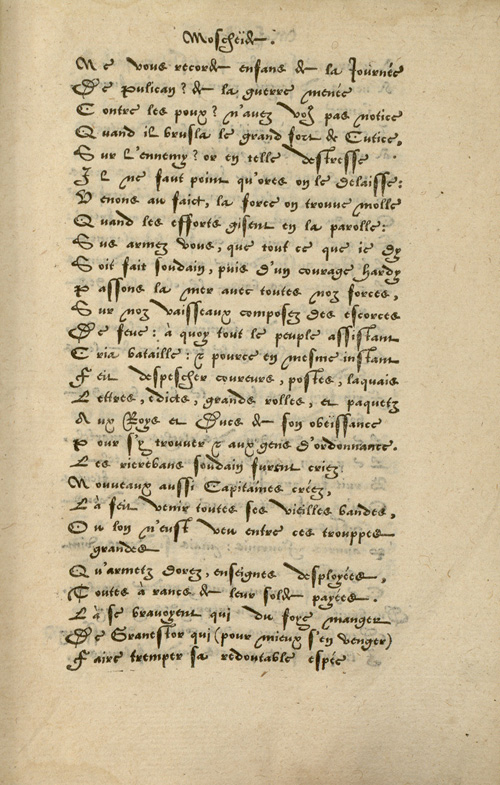 Moscheïde.
Ne vous recorde enfans de la Journée
De Pulican? de la guerre menée
Contre les poux? n'avez voꝰ pas notice
Quand il brusla le grand fort de Cutice,
Sur l'ennemy? or en telle destresse
Il ne faut point qu'ores on le delaisse:
Venons au faict, la force on trouve molle
Quand les efforts gisent en la parolle:
Sus armez vous, que tout ce que ie dy
Soit fait soudain, puis d'un courage hardy
Passons la mer avec toutes noz forces,
Sur noz vaisseaux composez des escorces
De feve: à quoy tout le peuple assistant
Cria bataille: & pource en mesme instant
Feit despescher coureurs, postes, laquais
Lettres, edicts, grandes rolles, et paquetz
Aux Roys et Ducs de son obeissance
Pour s'y trouver & aux gens d'ordonnance.
Les rierebans soudain furent criez
Nouveaux aussi Capitaines créez,
Là feit venir toutes ses vieilles bandes,
Ou lon n'eust veu entre ces trouppes
grandes
Qu'armetz dorez, enseignes desployées,
Toutes à rancs de leur solde payées.
Là se bravoyent qui du foye manger
De Granestor qui (pour mieux s'en venger)
Faire tremper sa redoutable espée